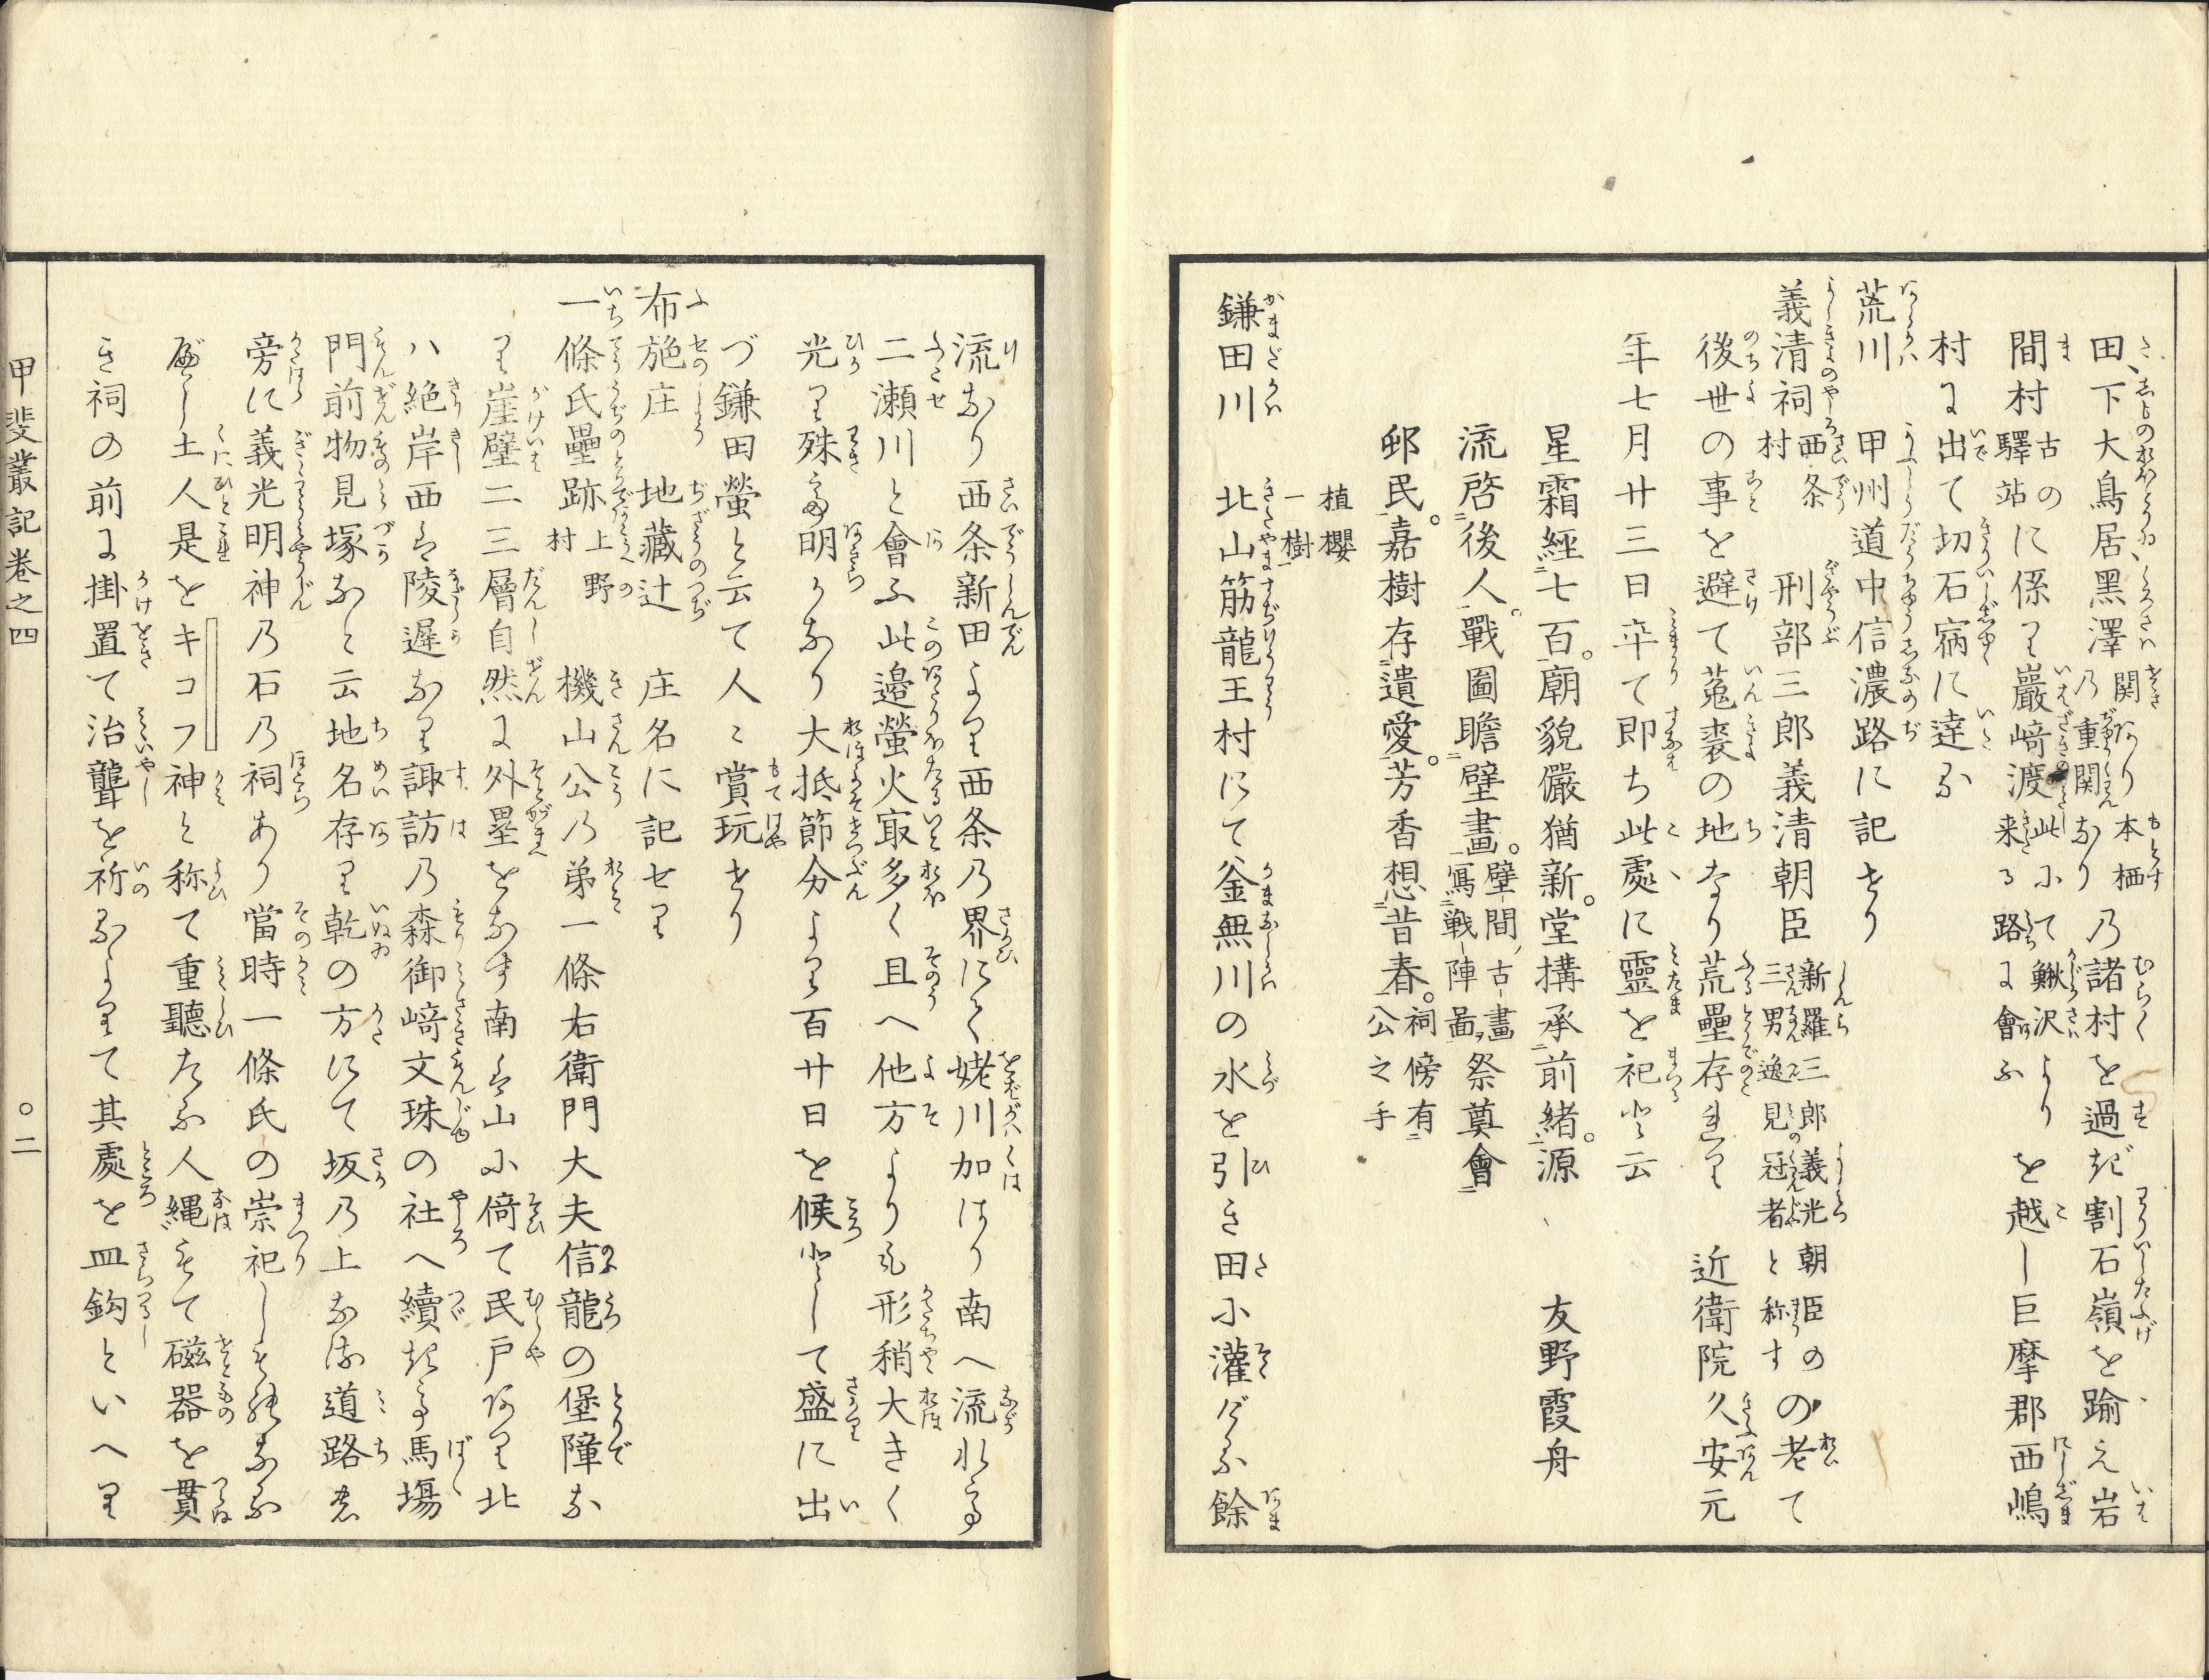 田下大鳥居黑澤関あり本栖乃重関なり乃諸村を過ぎ割石嶺を踰え岩
間村古の驛站に係り巖﨑渡此にて鰍沢より来る路に會ふを越し巨摩郡西嶋
村に出て切石宿に達る
荒川　甲州道中信濃路に記せり
義清祠西条村　刑部三郎義清朝臣新羅三郎義光朝臣の三男逸見冠者と称すの老て
後世の事を避て菟裘の地なり荒壘存れり　近衛院久安元
年七月廿三日卒て即ち此處に靈を祀と云
友野霞舟
星霜經七百。廟貌儼猶新。堂搆承前緒。源
流啓後人。戰圖瞻壁畫。壁間古畫寫戦陣啚祭奠會
邨民。嘉樹存遺愛。芳香想昔春。祠傍有公之手
植櫻一樹
鎌田川　北山筋龍王村にて釜無川の水を引き田に灌ぎる餘
流なり西条新田より西条乃界にて姥川加はり南へ流れて
二瀬川と會ふ此邉螢火㝡多く且へ他方よりも形稍大きく
光り殊に明かなり大抵節分より百廿日を候として盛に出
づ鎌田螢と云て人々賞玩せり
布施庄　地藏辻　庄名に記せり
一條氏壘跡上野村　機山公乃弟一條右衛門大夫信龍の堡障な
り崖壁二三層自然に外塁をなす南は山に倚て民戸あり北
ハ絶岸西は陵遲なり諏訪乃森御﨑文珠の社へ續き馬塲
門前物見塚なと云地名存り乾の方にて坂乃上なる道路の
旁に義光明神乃石乃祠あり當時一條氏の崇祀しも
べし土人是をキコフ神と称て重聽たる人縄もて磁器を貫
き祠の前に掛置て治聾を祈るよりて其處を皿鈎といへり
甲斐叢記卷之四　〇二